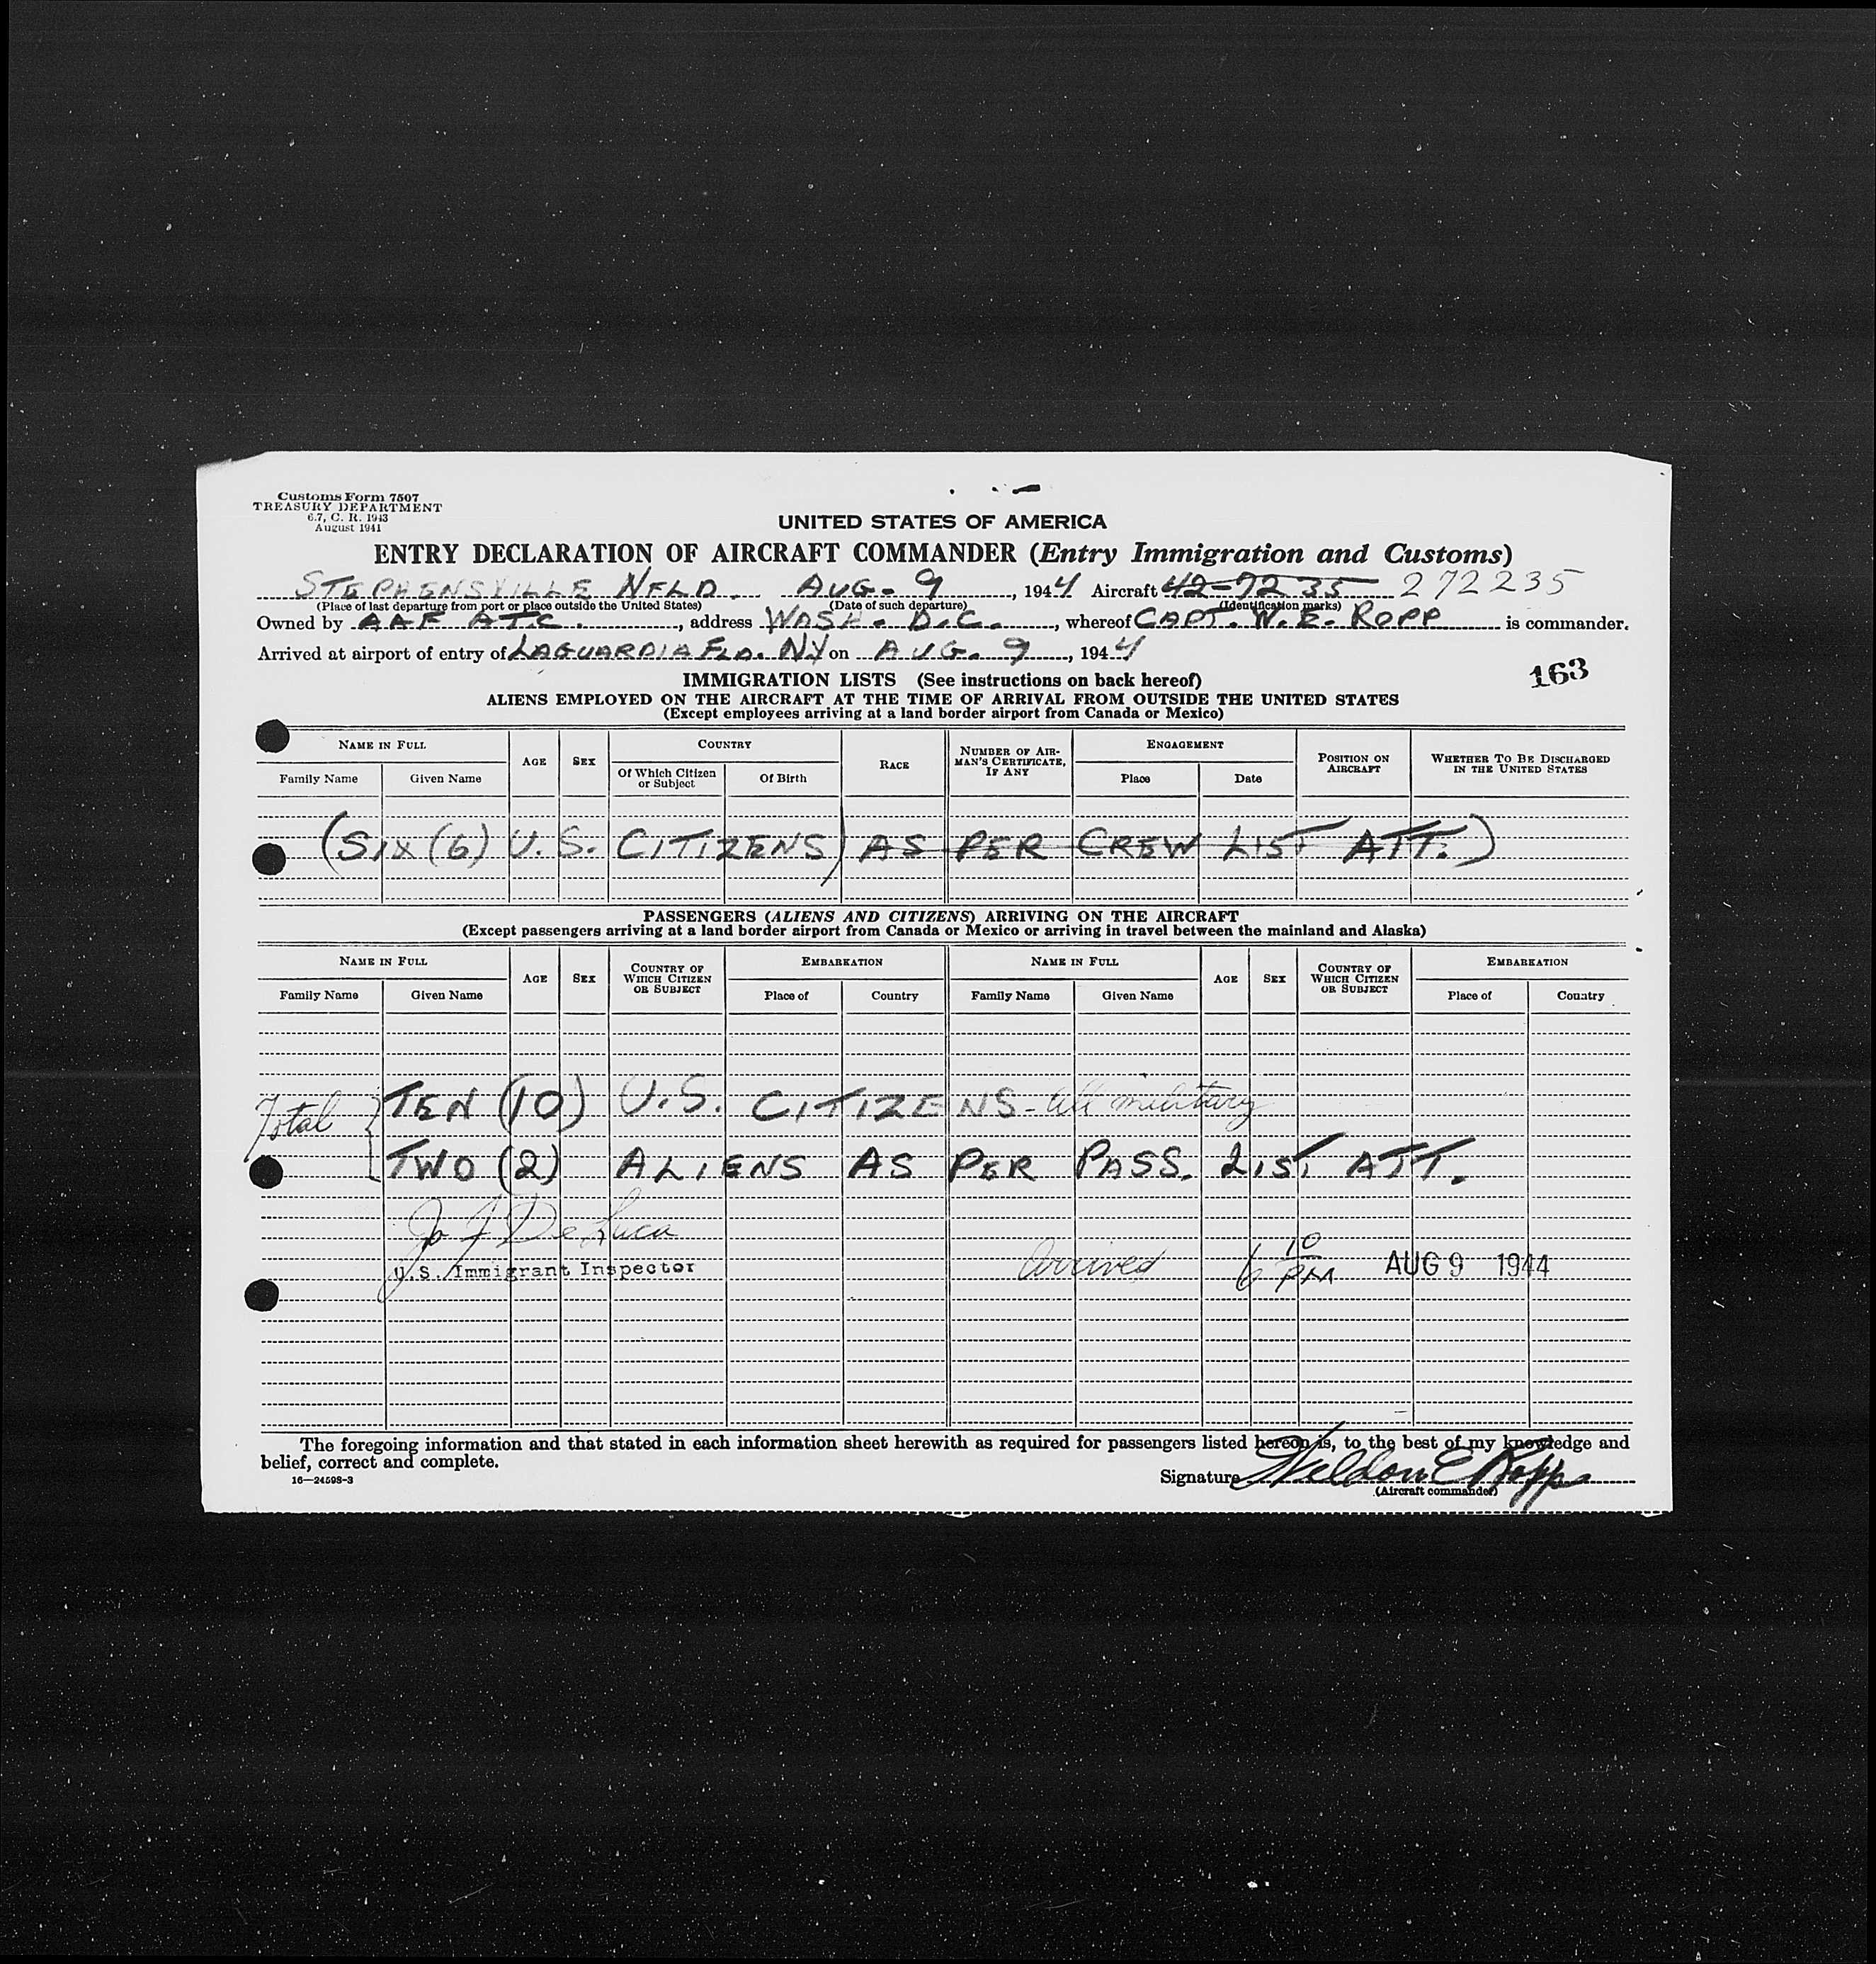 Customs Form 7507
TREASURY DEPARTMENT
6.7, C. R. 1943
August 1941
UNITED STATES OF AMERICA
ENTRY DECLARATION OF AIRCRAFT COMMANDER (Entry Immigration and Customs)
STEPHENSVILLE NFLD. AUG. 9, 1944 Aircraft 42-72 35 272235
(Place of last departure from port or place outside the United States) (Date of such departure) (Identification marks)
Owned by AAF ATC., address WASH. D.C., whereof CAPT. W. E. ROPP is commander.
Arrived at airport of entry of LAGUARDIA FLD. NY on AUG. 9, 1944
163
IMMIGRATION LISTS (See instructions on back hereof)
ALIENS EMPLOYED ON THE AIRCRAFT AT THE TIME OF ARRIVAL FROM OUTSIDE THE UNITED STATES
(Except employees arriving at a land border airport from Canada or Mexico)
NAME IN FULL AGE SEX COUNTRY RACE NUMBER OF AIRMAN'S CERTIFICATE, IF ANY ENGAGEMENT POSITION ON AIRCRAFT WHETHER TO BE DISCHARGED IN THE UNITED STATES
Family Name Given Name Of Which Citizen or Subject Of Birth Place Date
(SIX (6) U.S. CITIZENS) AS PER CREW LIST ATT.)
PASSENGERS (ALIENS AND CITIZENS) ARRIVING ON THE AIRCRAFT
(Except passengers arriving at a land border airport from Canada or Mexico or arriving in travel between the mainland and Alaska)
NAME IN FULL AGE SEX COUNTRY OF WHICH CITIZEN OR SUBJECT EMBARKATION NAME IN FULL AGE SEX COUNTRY OF WHICH CITIZEN OR SUBJECT EMBARKATION
Family Name Given Name Place of Country Family Name Given Name Place of Country
Total { TEN (10) U.S. CITIZENS - all military
TWO (2) ALIENS AS PER PASS. LIST ATT.
Jo F De Luca
U.S. Immigrant Inspector Arrived 6 10 PM AUG 9 1944
The foregoing information and that stated in each information sheet herewith as required for passengers listed hereon is, to the best of my knowledge and
belief, correct and complete.
16—24598-3
Signature Weldon E Ropp
(Aircraft commander)